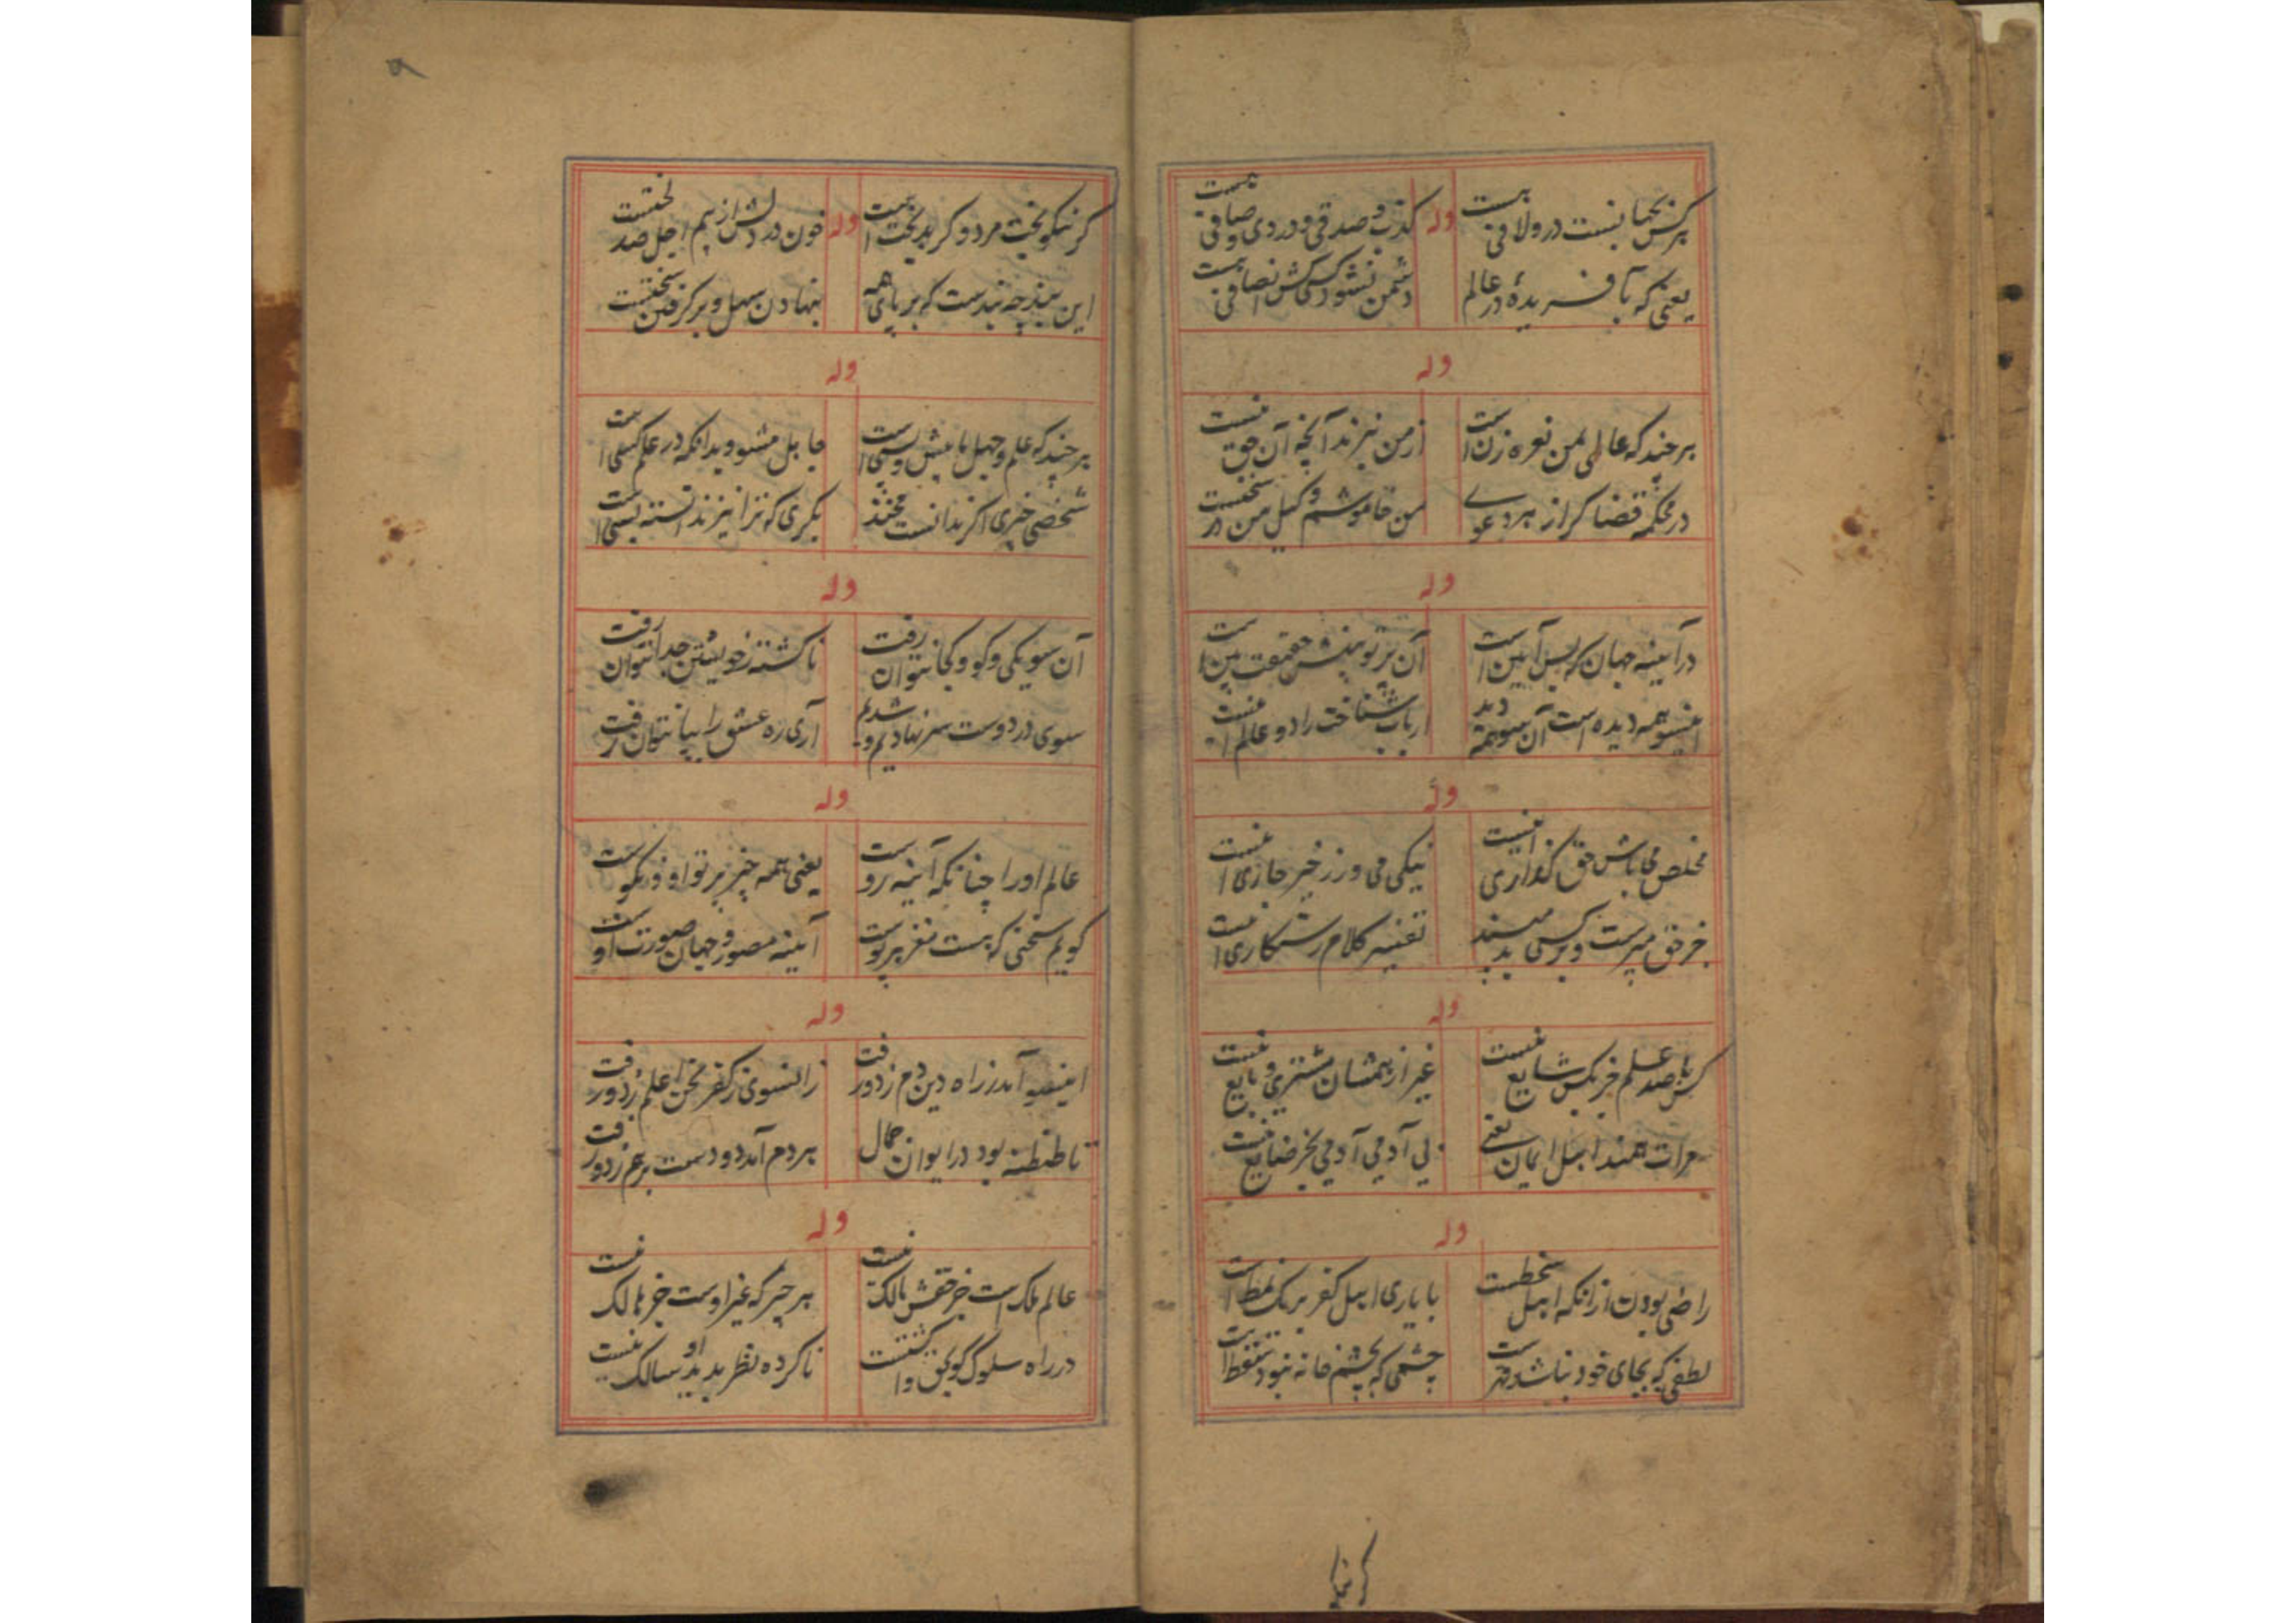 وله
هرکس بجهانست در ولافی هست
کذب و صدقی و دردی و صافی هست
یعنی که بآفریدهٔ در عالم
دشمن نشود کسی کش انصافی هست
وله
هر چند که عالمی بمن نعره زن است
از من نپزند آنچه آن حق نیست
در محکمه قضا کر از هر دعوے
من خاموشم وکیل من در سخنست
وله
در آیینه جهان که پس آیین است
آن پرتو بینش حقیقت بین است
اینسو همه دیده است آن سو همه دید
ارباب شناخت را دو عالم اینست
وله
مخلص می باش حق گذاری اینست
نیکی می ورز خیر جاری اینست
جز حق مپرست و بر کسی بد مپسند
تفسیر کلام رستکاری اینست
وله
کس با صد علم جز بکس شایع نیست
غیر از همشان مشتری و بایع نیست
مرات همند اهل ایمان یعنی
بی آدمی آدمی بجز ضایع نیست
وله
راضی بودن ازانکه اهل سخطست
با یاری اهل کفر بر یک نمط است
لطفی که بجای خود نباشد قهر است
چشمی که بچشم خانه نبود نقط است
کر نیکو
۵
کر نیکو بخت مرد و کر بدبخت است
وله
خون در دلش از بیم اجل صد لختست
این بند چه بندست که بر پای همه
بنهادن سهل و بر کرفتن سختست
وله
هر چند که علم و جهل با بیش و پسی است
جاهل مشنو و بدانکه در علم کسی است
شخصی خبری اکر ندانست مخند
بکری که ترا نیز ندانسته بسی است
وله
آن سو یکی و کو و کجا نتوان رفت
ناکشته ز خویشتن جدا نتوان رفت
سوی در دوست سر نهادیم و شدیم
آری ره عشق را بپا نتوان رفت
وله
عالم او را چنانکه آینه روست
یعنی همه چیز پرتو او و نکوست
کویم سخنی که هست مغز هر پوست
آیینه مصور و جهان صورت اوست
وله
اینسو آمد ز راه دین دم زد و رفت
زانسوی ز کفر محض اعلم زد و رفت
تا طنطنه بود در ایوان جمال
هر دم آمد دو دست بر هم زد و رفت
وله
عالم ملک است جز حقش مالک نیست
هر چیز که غیر اوست جز هالک نیست
در راه سلوک کو بحق واقف نیست
ناکرده نظر بدید او سالک نیست